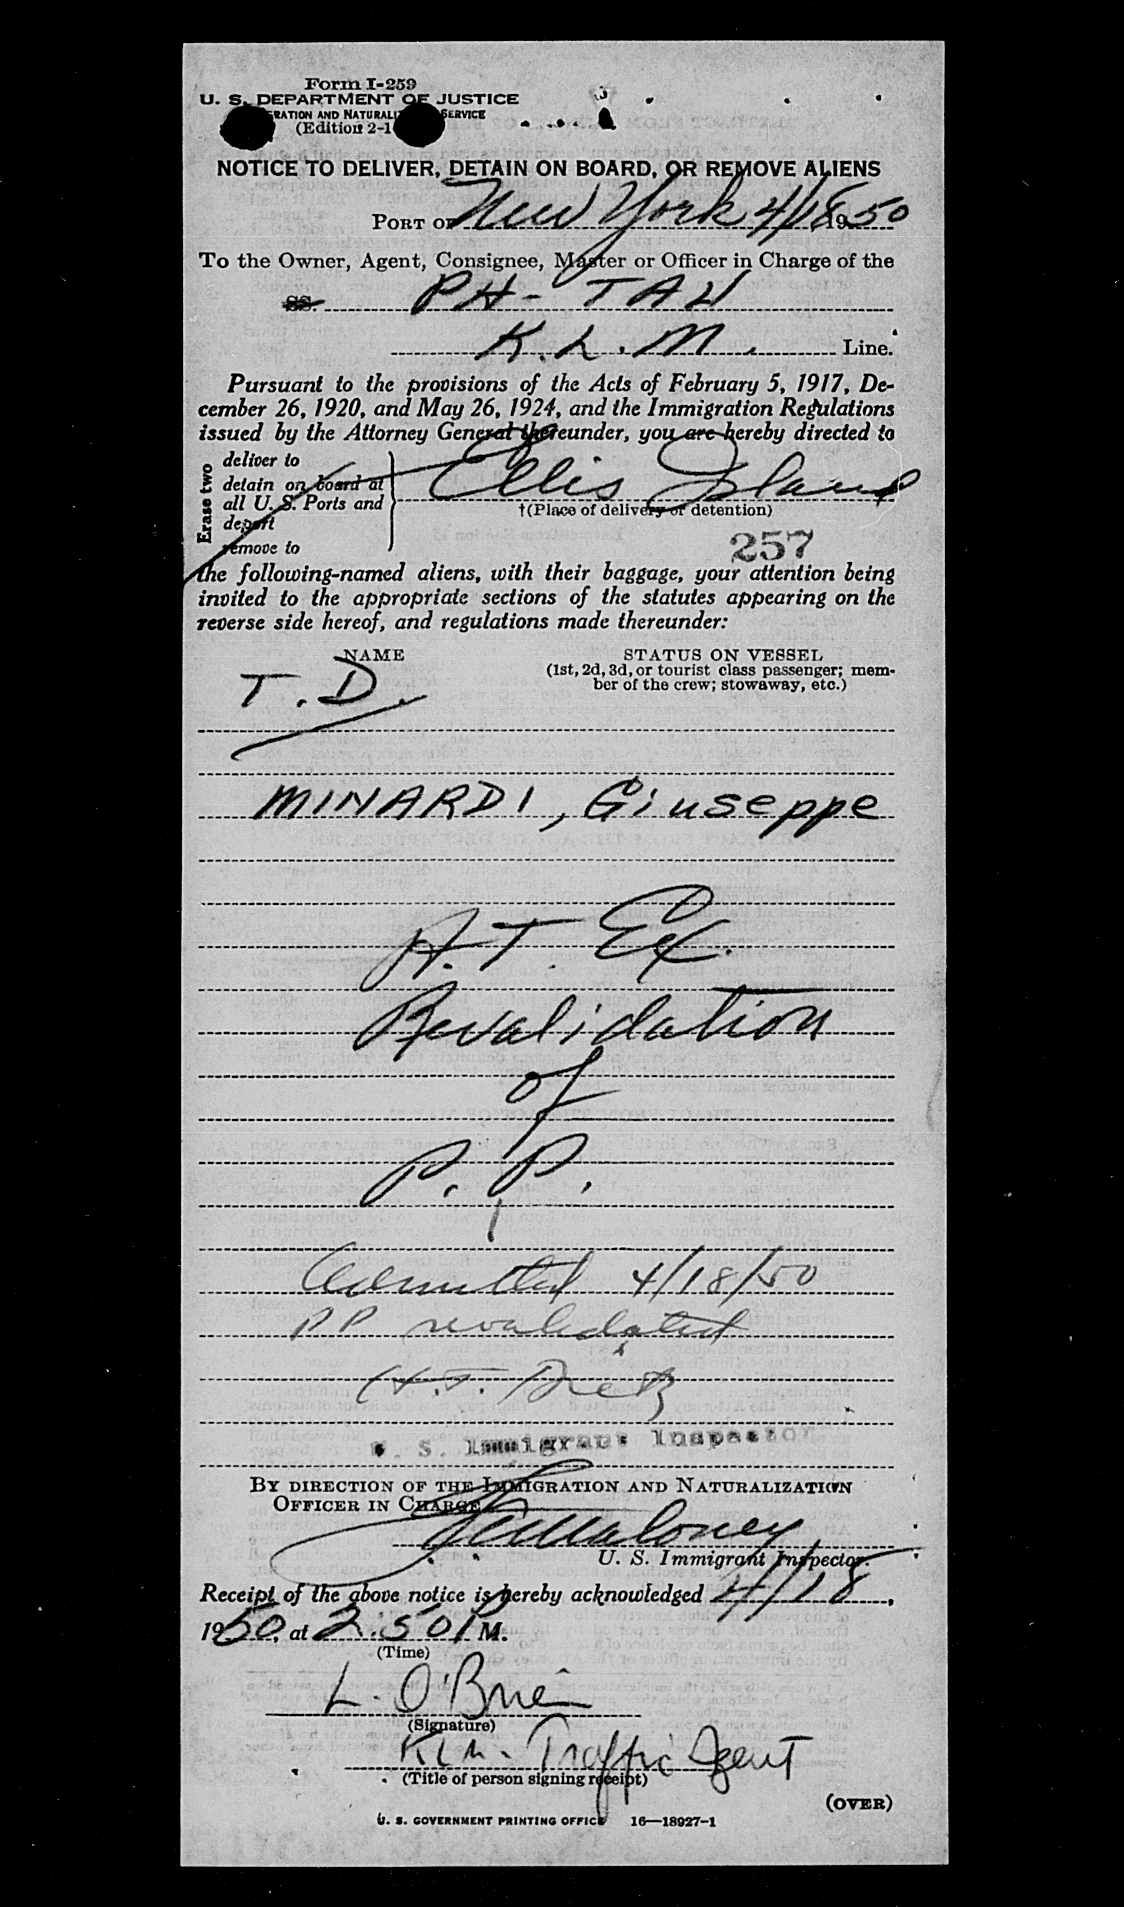 Form I-259
U. S. DEPARTMENT OF JUSTICE
RATION AND NATURALI SERVICE
(Edition 2-1
NOTICE TO DELIVER, DETAIN ON BOARD, OR REMOVE ALIENS
PORT OF New York 4/18 1950
To the Owner, Agent, Consignee, Master or Officer in Charge of the
SS. PH-TAW
K.L.M. Line.
Pursuant to the provisions of the Acts of February 5, 1917, De-
cember 26, 1920, and May 26, 1924, and the Immigration Regulations
issued by the Attorney General thereunder, you are hereby directed to
Erase two
deliver to
detain on board at
all U. S. Ports and
deport
remove to
Ellis Island
†(Place of delivery or detention)
257
the following-named aliens, with their baggage, your attention being
invited to the appropriate sections of the statutes appearing on the
reverse side hereof, and regulations made thereunder:
NAME STATUS ON VESSEL
(1st, 2d, 3d, or tourist class passenger; mem-
ber of the crew; stowaway, etc.)
T.D.
MINARDI, Giuseppe
A.T. Ex.
Revalidation
of
P.P.
Admitted 4/18/50
PP revalidated
U. S. Immigrant Inspector
BY DIRECTION OF THE IMMIGRATION AND NATURALIZATION
OFFICER IN CHARGE
U. S. Immigrant Inspector.
Receipt of the above notice is hereby acknowledged 4/18,
1950, at 2:50 P M.
(Time)
L. O'Brien
(Signature)
KLM - Traffic Agent
(Title of person signing receipt)
(OVER)
U. S. GOVERNMENT PRINTING OFFICE 16—18927-1